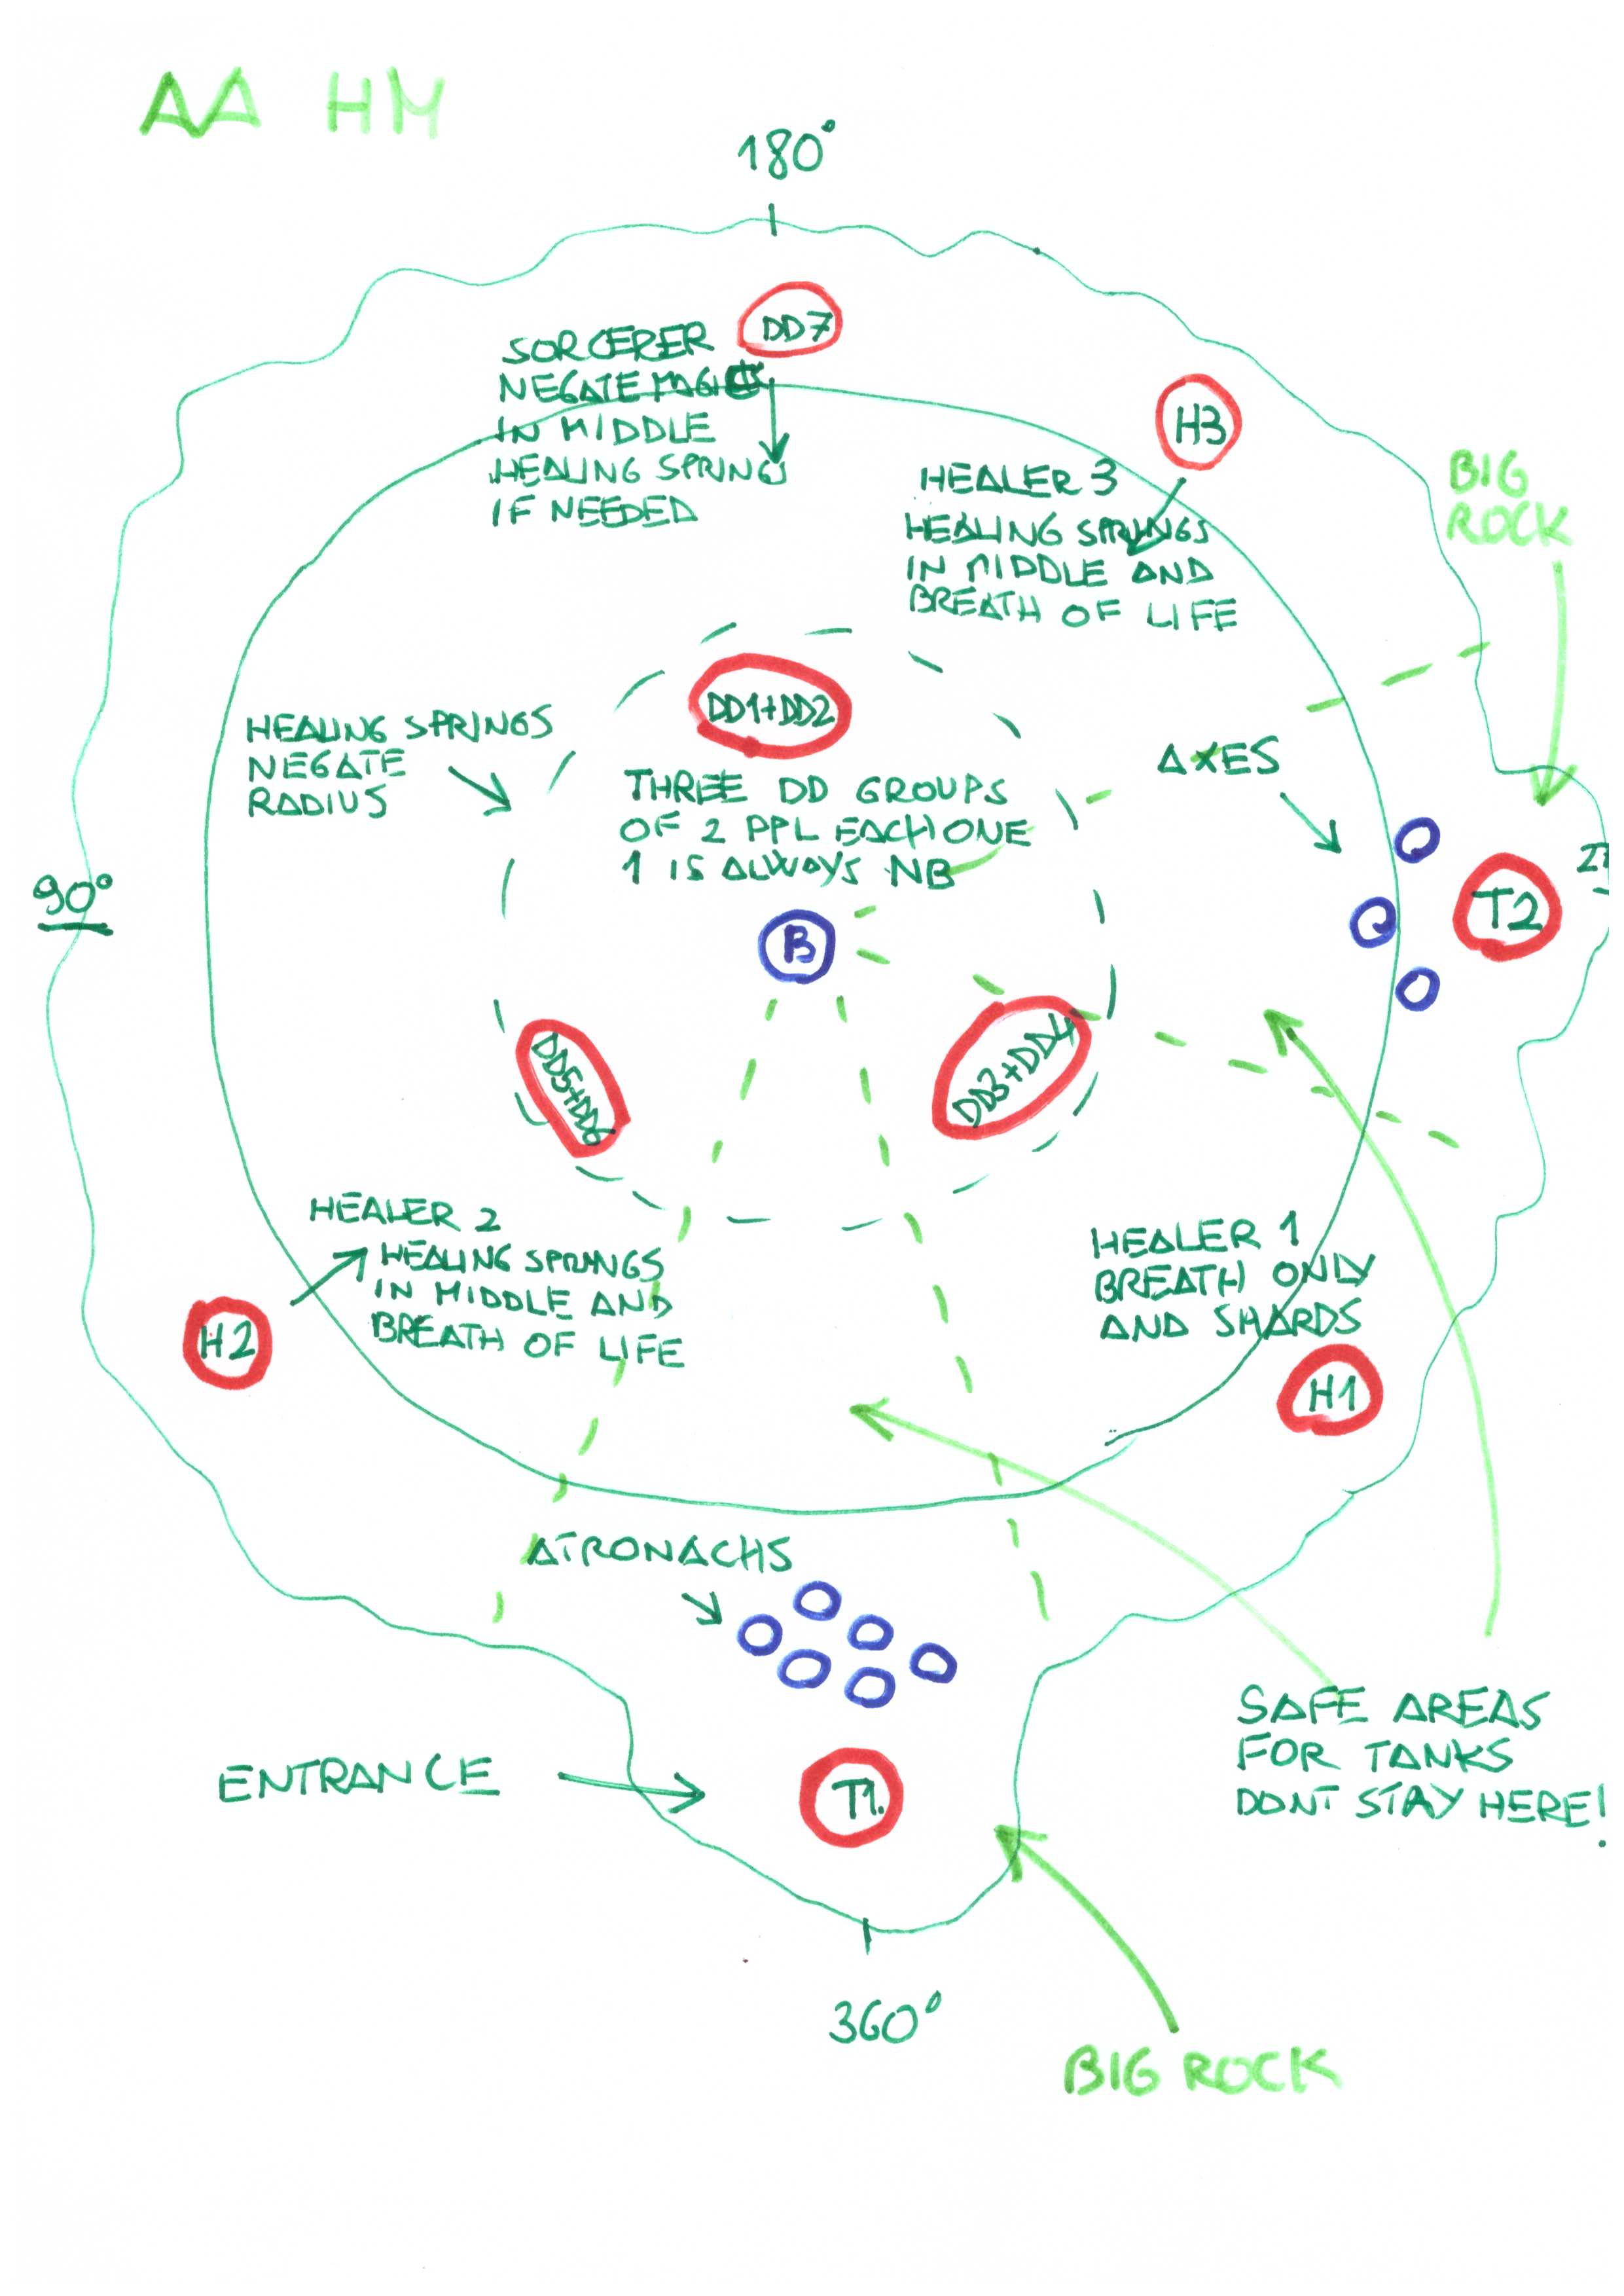 AA HM
180°
DD7
SORCERER
NEGATE MAGIC
IN MIDDLE
HEALING SPRINGS
IF NEEDED
H3
HEALER 3
HEALING SPRINGS
IN MIDDLE AND
BREATH OF LIFE
BIG
ROCK
DD1+DD2
HEALING SPRINGS
NEGATE
RADIUS
THREE DD GROUPS
OF 2 PPL EACH ONE
1 IS ALWAYS NB
AXES
90°
B
T2
27
DD5+DD6
DD3+DD4
HEALER 2
HEALING SPRINGS
IN MIDDLE AND
BREATH OF LIFE
H2
HEALER 1
BREATH ONLY
AND SHARDS
H1
ATRONACHS
ENTRANCE
T1.
SAFE AREAS
FOR TANKS
DONT STAY HERE!
360°
BIG ROCK